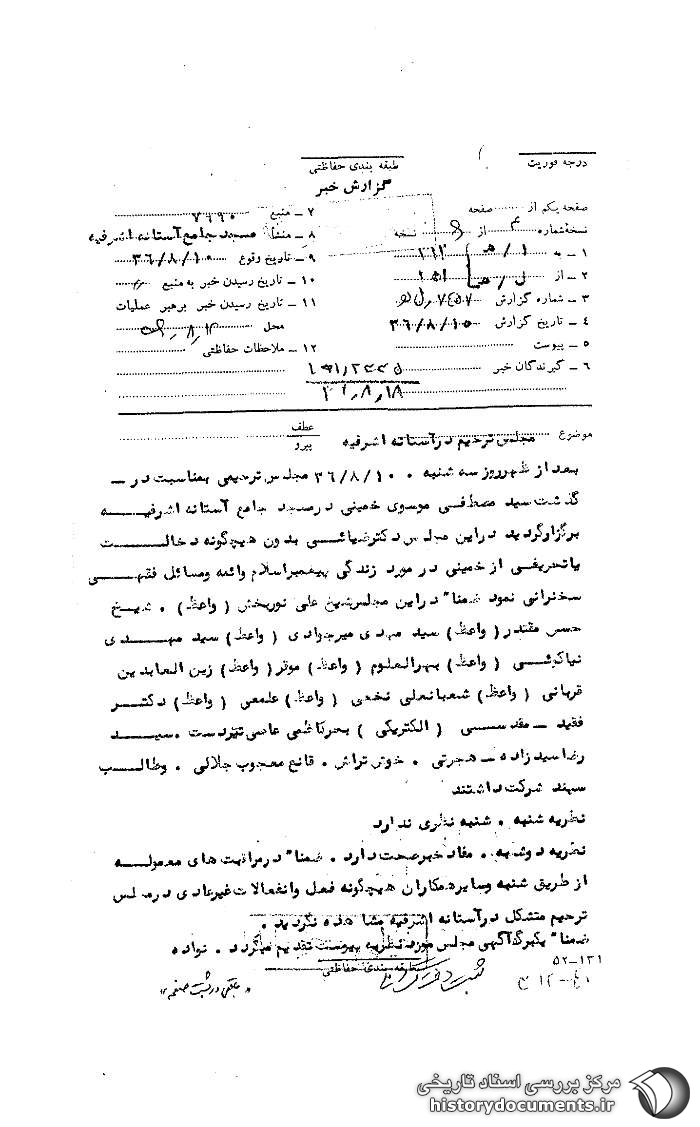 درجه فوریت
طبقه بندی حفاظتی
گزارش خبر
صفحه یکم از صفحه
نسخه شماره ۳ از ۵ نسخه
۱ ـ به ۳۱۲
۲ ـ از
۳ ـ شماره گزارش
۴ ـ تاریخ گزارش ۳۶/۸/۱۵
۵ ـ پیوست
۶ ـ گیرندگان خبر
۷ ـ منبع ۷۶۹۰
۸ ـ منشأ مسجد جامع آستانه اشرفیه
۹ ـ تاریخ وقوع ۳۶/۸/۱۰
۱۰ ـ تاریخ رسیدن خبر به منبع
۱۱ ـ تاریخ رسیدن خبر برهبر عملیات
محل
۱۲ ـ ملاحظات حفاظتی
موضوع مجلس ترحیم در آستانه اشرفیه
عطف
پیرو
بعد از ظهر روز سه شنبه ۰ ۳۶/۸/۱۰ مجلس ترحیمی بمناسبت در ـ
گذشت سید مصطفی موسوی خمینی در مسجد جامع آستانه اشرفیه
برگزار گردید در این مجلس دکتر ضیائی بدون هیچگونه دخالت
یا تعریفی از خمینی در مورد زندگی پیغمبر اسلام وائمه ومسائل فقهی
سخنرانی نمود ضمنا" در این مجلس شیخ علی نوربخش ( واعظ ) ۰ شیخ
حسن مقتدر ( واعظ ) سید مهدی میرجوادی ( واعظ ) سید مهدی
نیاکوئی ( واعظ ) بهرالعلوم ( واعظ ) موثر ( واعظ ) زین العابدین
قربانی ( واعظ ) شعبانعلی نخعی ( واعظ ) علمعی ( واعظ ) دکتر
فقید ـ مقدسی ( الکتریکی ) بحرکاظمی عاصی تیزدست ۰ سید
رضا سید زاده ـ هجرتی ۰ خوش تراش ۰ قانع محجوب جلالی ۰ وطالب
سپند شرکت داشتند
نظریه شنبه ۰ شنبه نظری ندارد
نظریه دوشنبه ۰ مفاد خبر صحت دارد ۰ ضمنا" در مراقبت های معموله
از طریق شنبه وسایر همکاران هیچگونه فعل وانفعالات غیرعادی در مجلس
ترحیم متشکل در آستانه اشرفیه مشاهده نگردید ۰
ضمنا" یکبرگ آگهی مجلس مورد نظر به پیوست تقدیم میگردد ۰ نواده
طبقه بندی حفاظتی
۵۲-۱۳۱
۱۲-۴۰
مرکز بررسی اسناد تاریخی
historydocuments.ir